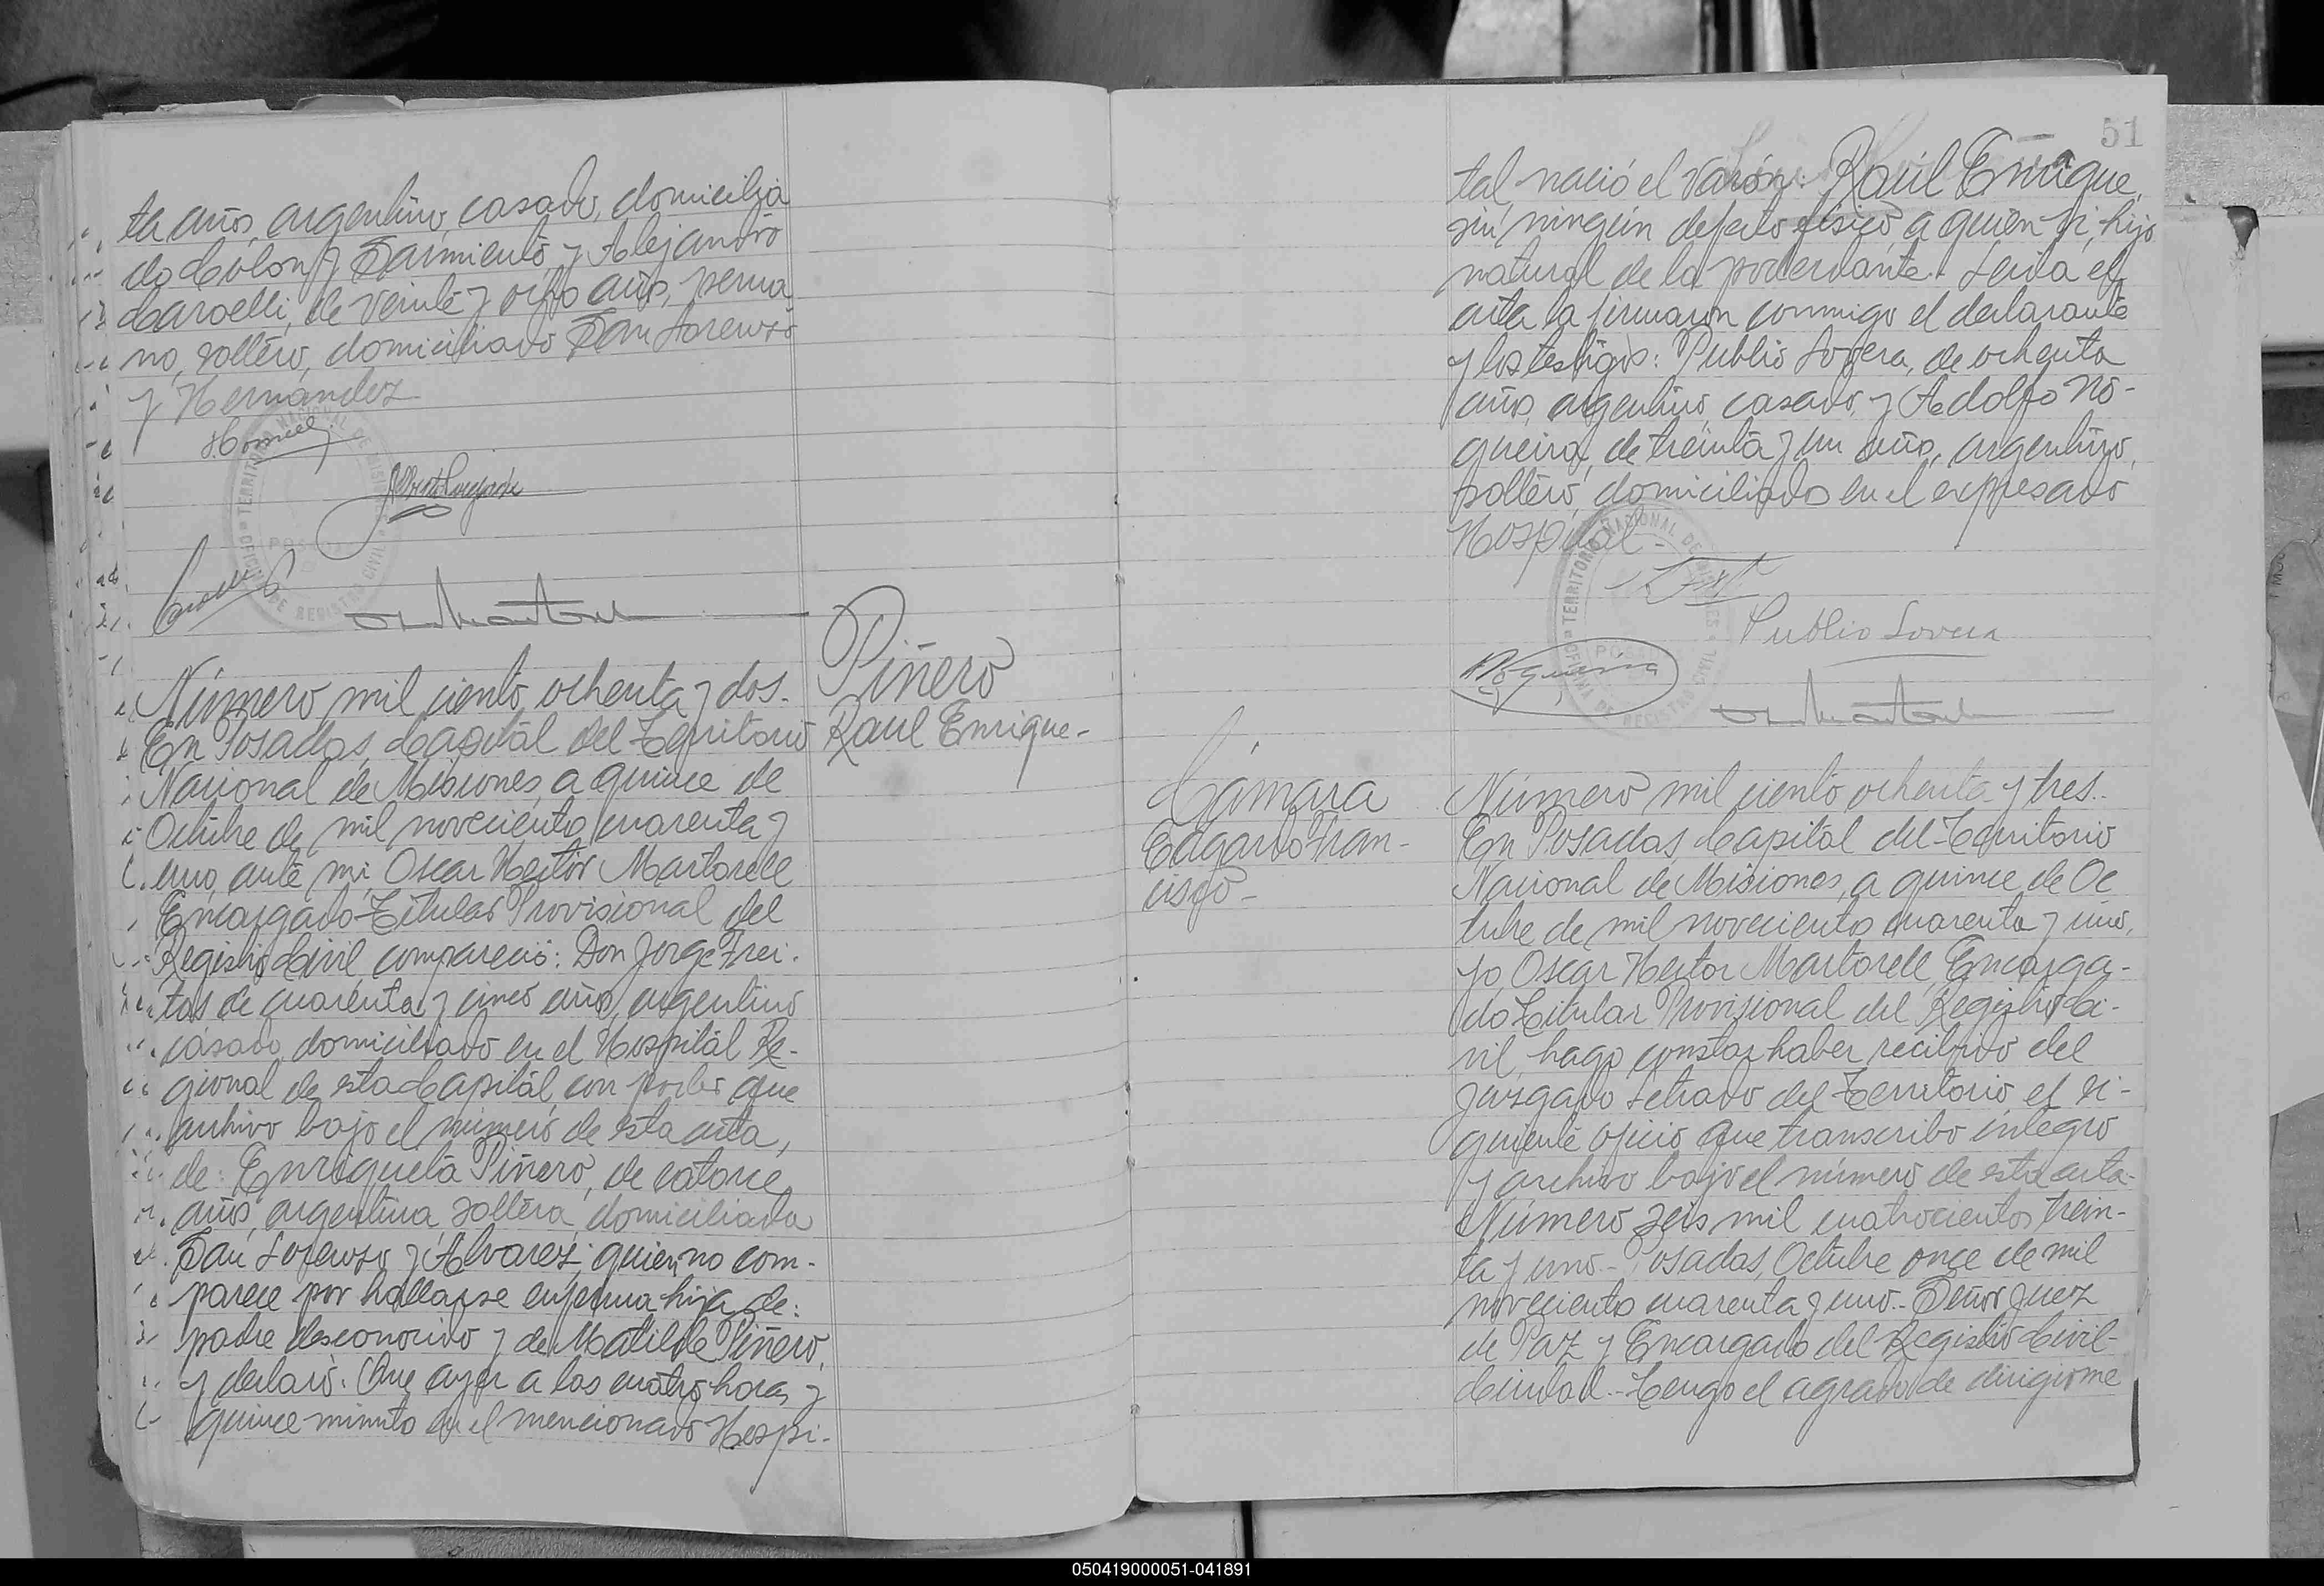 ta años, argentino, casado, domicilia
do Colón y Sarmiento y Alejandro
Caroelli, de veinte y ocho años, perua
no, soltero, domiciliado San Lorenzo
y Hernandez
TERRITORIO NACIONAL DE MISIONES
OFICINA DE REGISTRO CIVIL
Número mil ciento ochenta y dos.
En Posadas, Capital del Territorio
Nacional de Misiones, a quince de
Octubre de mil novecientos cuarenta y
uno, ante mi, Oscar Hector Martorell
Encargado Titular Provisional del
Registro Civil, compareció: Don Jorge Frei-
tas de cuarenta y cinco años, argentino
casado, domiciliado en el Hospital Re-
gional de esta Capital, con poder que
archivo bajo el número de esta acta,
de: Enriqueta Piñero, de catorce
años, argentina, soltera, domiciliada
San Lorenzo y Alvarez, quien no com-
parece por hallarse enferma hija de:
padre desconocido y de Matilde Piñero,
y declaró: Que ayer a las cuatro horas y
quince minutos en el mencionado Hospi-
Piñero
Raul Enrique-
51
tal, nació el varón: Raúl Enrique,
sin ningún defecto fisico, a quien vi, hijo
natural de la poderdante. Leida el
acta la firmaron conmigo el declarante
y los testigos: Publio Lovera, de ochenta
años, argentino, casado, y Adolfo No-
gueira, de treinta y un años, argentino,
soltero, domiciliados en el expresado
Hospital-
TERRITORIO NACIONAL DE MISIONES
POSADAS
OFICINA DE REGISTRO CIVIL
Publio Lovera
ANogueira
Cámara
Edgardo Fran-
cisco-
Número mil ciento ochenta y tres.-
En Posadas, Capital del Territorio
Nacional de Misiones, a quince de Oc
tubre de mil novecientos cuarenta y uno,
yo Oscar Hector Martorell, Encarga-
do Titular Provisional del Registro Ci-
vil, hago constar haber recibido del
Juzgado Letrado del Territorio, el si-
guiente oficio que transcribo integro
y archivo bajo el número de esta acta-
Número seis mil cuatrocientos trein-
ta y uno.- Posadas, Octubre once de mil
novecientos cuarenta y uno.- Señor Juez
de Paz y Encargado del Registro Civil-
Ciudad.- Tengo el agrado de dirigirme
050419000051-041891